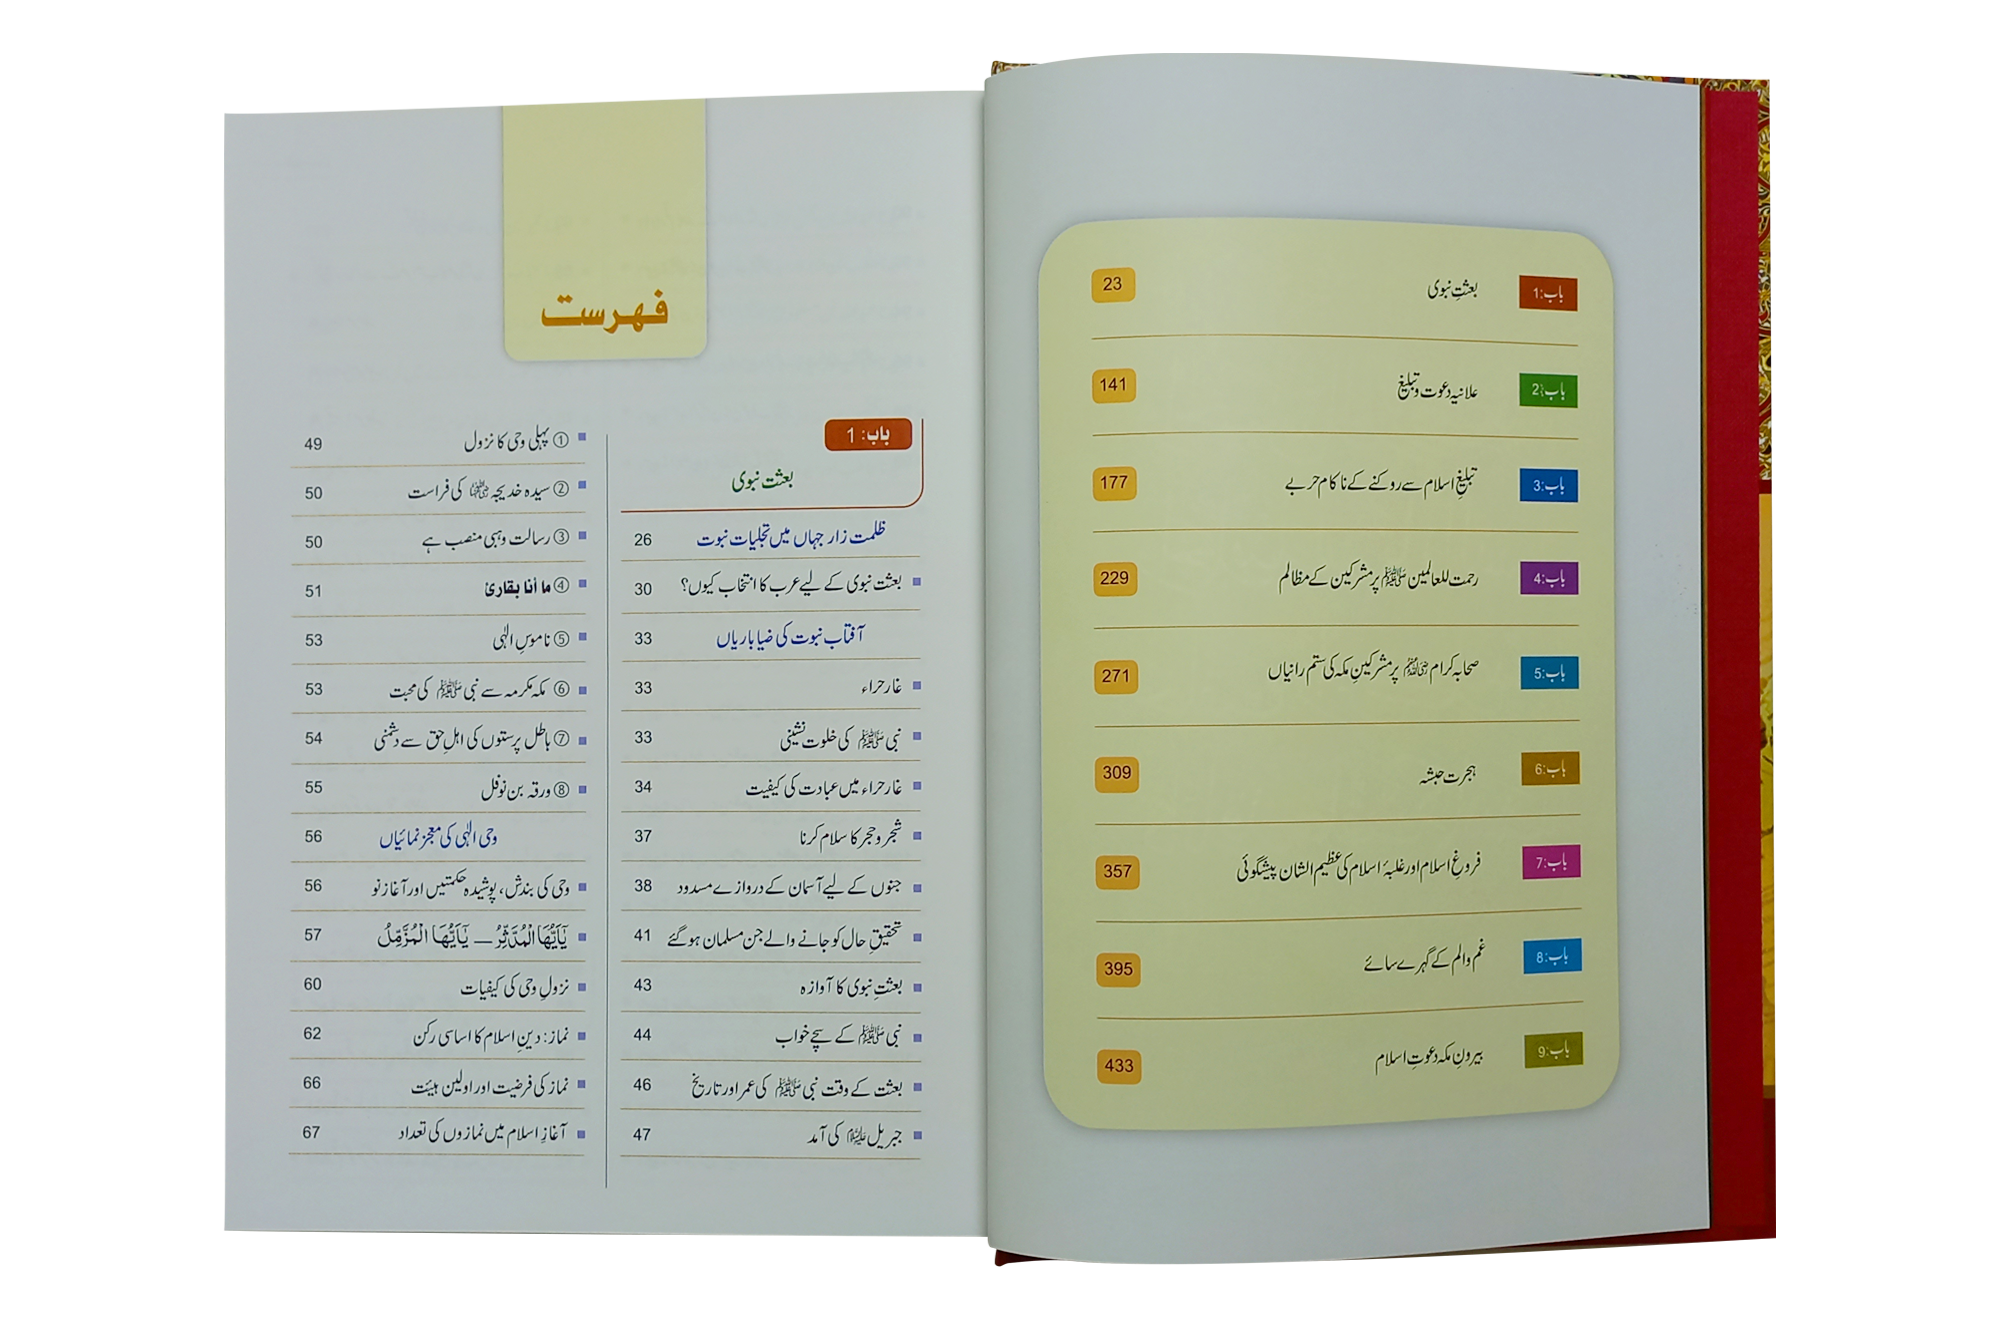 باب:1 بعثتِ نبوی 23
باب:2 علانیہ دعوت و تبلیغ 141
باب:3 تبلیغِ اسلام سے روکنے کے ناکام حربے 177
باب:4 رحمت للعالمین ﷺ پر مشرکین کے مظالم 229
باب:5 صحابہ کرام رضی اللہ عنہم پر مشرکینِ مکہ کی ستم رانیاں 271
باب:6 ہجرت حبشہ 309
باب:7 فروغِ اسلام اور غلبۂ اسلام کی عظیم الشان پیشگوئی 357
باب:8 غم والم کے گہرے سائے 395
باب:9 بیرونِ مکہ دعوتِ اسلام 433
فہرست
باب: 1
بعثت نبوی
ظلمت زار جہاں میں تجلیات نبوت 26
بعثت نبوی کے لیے عرب کا انتخاب کیوں؟ 30
آفتاب نبوت کی ضیا باریاں 33
غار حراء 33
نبی ﷺ کی خلوت نشینی 33
غار حراء میں عبادت کی کیفیت 34
شجر و حجر کا سلام کرنا 37
جنوں کے لیے آسمان کے دروازے مسدود 38
تحقیقِ حال کو جانے والے جن مسلمان ہو گئے 41
بعثتِ نبوی کا آوازہ 43
نبی ﷺ کے سچے خواب 44
بعثت کے وقت نبی ﷺ کی عمر اور تاریخ 46
جبریل علیہ السلام کی آمد 47
① پہلی وحی کا نزول 49
② سیدہ خدیجہ رضی اللہ عنہا کی فراست 50
③ رسالت وہبی منصب ہے 50
④ ما أنا بقارئ 51
⑤ ناموسِ الٰہی 53
⑥ مکہ مکرمہ سے نبی ﷺ کی محبت 53
⑦ باطل پرستوں کی اہلِ حق سے دشمنی 54
⑧ ورقہ بن نوفل 55
وحی الٰہی کی معجز نمائیاں 56
وحی کی بندش، پوشیدہ حکمتیں اور آغاز نو 56
يٰٓاَيُّهَا الْمُدَّثِّرُ — يٰٓاَيُّهَا الْمُزَّمِّلُ 57
نزولِ وحی کی کیفیات 60
نماز: دینِ اسلام کا اساسی رکن 62
نماز کی فرضیت اور اولین ہیئت 66
آغازِ اسلام میں نمازوں کی تعداد 67